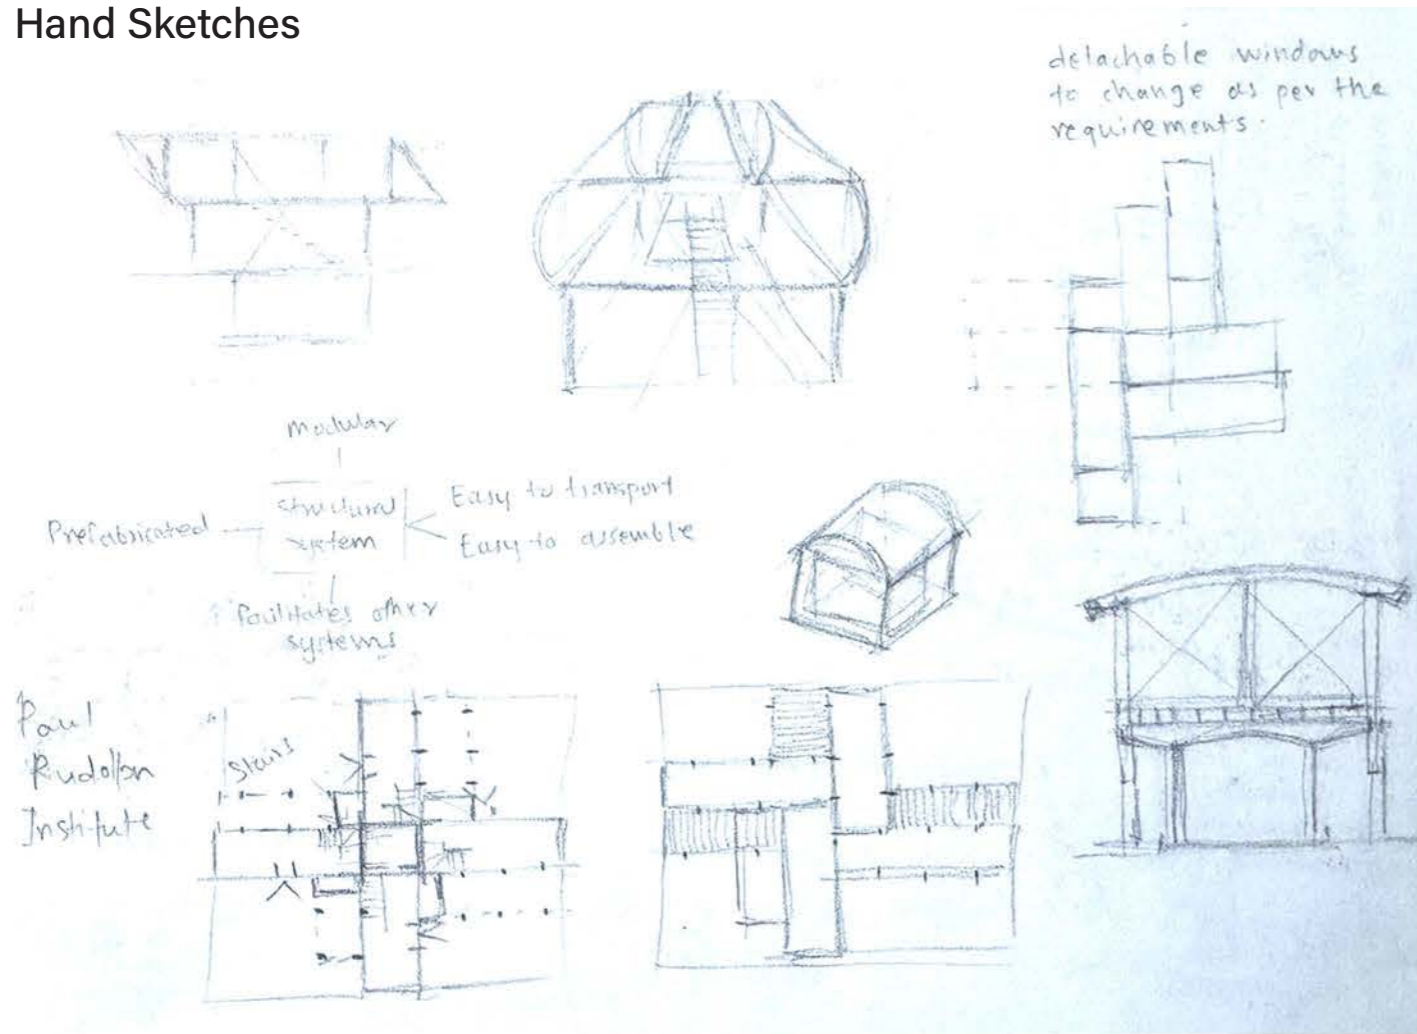 Hand Sketches
detachable windows
to change as per the
requirements.
Modular
Prefabricated
structural
system
Easy to transport
Easy to assemble
facilitates other
systems
Paul
Rudolph
Institute
Stairs